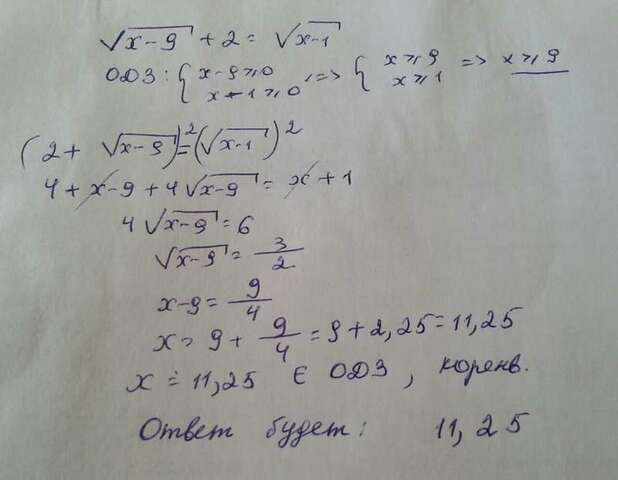 √x-9 + 2 = √x-1
ОДЗ: { x-9≥0 x-1≥0 , => { x≥9 x≥1 => x≥9
(2 + √x-9)² = (√x-1)²
4 + x-9 + 4√x-9 = x + 1
4√x-9 = 6
√x-9 = 3/2
x-9 = 9/4
x = 9 + 9/4 = 9 + 2,25 = 11,25
x = 11,25 ∈ ОДЗ, корень.
Ответ будет: 11,25